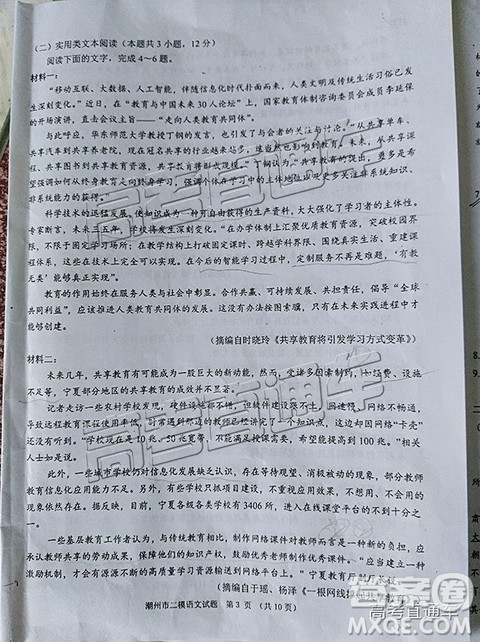 （二）实用类文本阅读（本题共3小题，12分）
阅读下面的文字，完成4～6题。
材料一：
“移动互联、大数据、人工智能，伴随信息化时代扑面而来，人类文明及其传统生活习俗已发
生深刻变化。”近日，在“教育与中国未来30人论坛”上，国家教育体制咨询委员会成员李延保
的开场演讲，直击会议主旨——“走向人类教育共同体”。
与此呼应，华东师范大学教授丁钢的发言，也引发了与会者的关注与讨论。“从共享单车、
共享汽车到共享养老院，现在冠名共享的行业越来越多，这当然也影响到教育。未来，从共享课
程、共享图书到共享教育资源，共享教育将形成气候。”丁钢认为，“共享教育的发展，更多是希
望强调如何从终身教育走向终身学习，强调个体在学习中的主体地位以及更多关注非系统知识、非
系统能力的获得。”
科学技术的迅猛发展，使知识成为一种可自由获得的生产资料，大大强化了学习者的主体性。
专家表示，未来三五年，学校将发生深刻变化。“在办学体制上汇聚优质教育资源，突破校园界
限，不限于固定学习场所；在教学结构上打破固定课时、跨越学科界限、围绕真实生活、重建课
程体系，这些在技术上完全可以实现。在今后的智能学习过程中，定制服务不再是难题，‘有教
无类’能够真正实现”。
教育的作用始终在服务人类与社会中彰显。合作共赢、可持续发展、共担责任，倡导“全球
共同利益”，应该推进人类教育共同体的发展。这没有办法按图索骥，只有在未来实践过程中才
能够创新。
（摘编自时晓玲《共享教育将引发学习方式变革》）
材料二：
未来几年，共享教育有可能成为一股巨大的新动能，然而，受诸多因素制约，如经费、设施
不足等，宁夏部分地区的共享教育之路遭遇梗阻。
记者走访一些农村学校发现，硬件设施不同一、网速慢、不少教室虽有设备但网络不畅通，
导致远程教育课程使用率低，时常遇到那边的教师已经问了一个知识点，这边却因网络“卡壳”
还没有听到。“学校现在是10兆、20兆宽带，不能满足授课需要，希望能提高到100兆。”相关
人士如是说。
此外，一些城市学校仍对信息化发展缺乏认识，存在等待观望、消极被动的现象，部分教师
教育信息化应用能力不足。另外，有些学校只负责建设，不重视资源应用和创新，重建不用的现
象依然存在。据反映，目前，宁夏各级各类学校有3406所，进入在线课堂平台的不到十分之
一。
一些基层教育工作者认为，与传统教育相比，制作网络课件对教师而言是一种新的负担，应
承认教师共享的劳动成果，保障他们的知识产权，鼓励优秀老师制作优秀课件。“应建立一种
激励机制，才会有更多优秀教师分享自己的教育资源。”宁夏教育厅
（摘编自于瑶、杨泽《一根网线
潮州市二模语文试题 第3页 （共10页）
高考直通车
答案圈
高考直通车